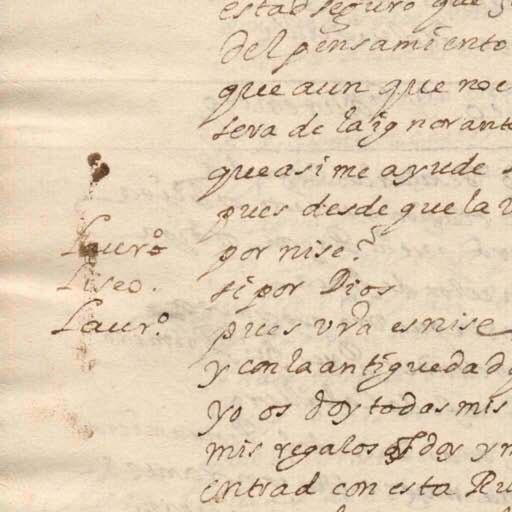 estad seguro que
del pensamiento
que aun que no e
sera de la ignorant
que asi me ayude
pues desde que la v
Laurº por nise?
Liseo. si por Dios
Laurº pues vra es nise
y con la antiguedad
yo os doy todas mis
mis regalos os doy y m
entrad con esta Ru